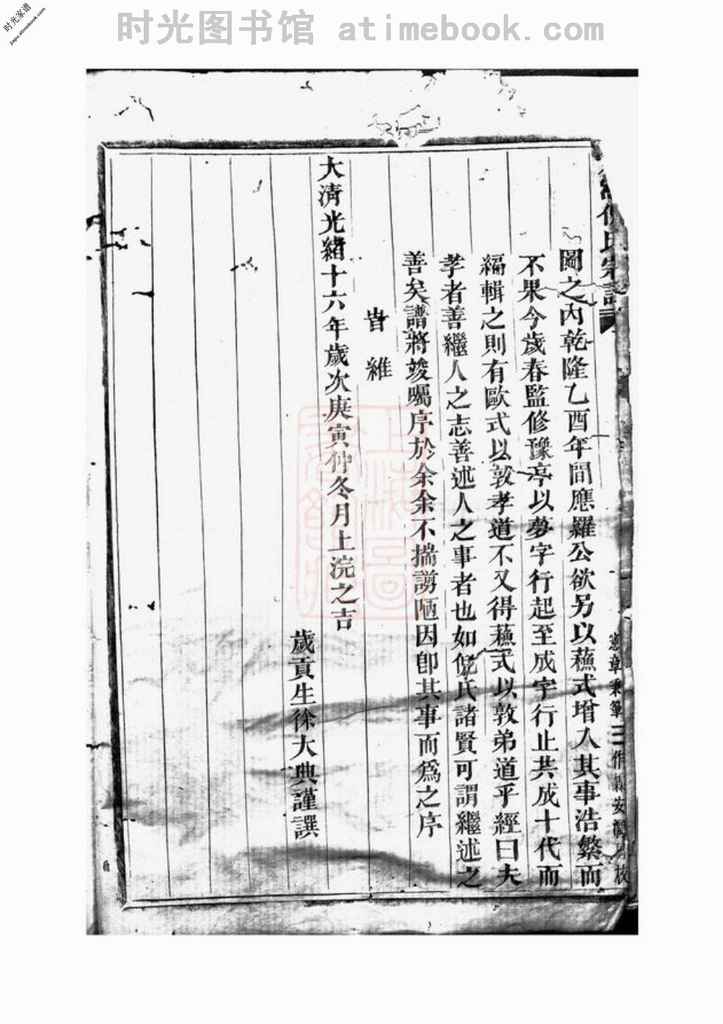 时光图书馆 atimebook.com
时光家谱
jiapu.atimebook.com
氏宗譜
圖之內乾隆乙酉年間應羅公欲另以蘓式增入其事浩繁而
不果今歲春監修豫亭以夢字行起至成字行止共成十代而
編輯之則有歐式以敦孝道不又得蘓式以敦弟道乎經曰夫
孝者善繼人之志善述人之事者也如倪氏諸賢可謂繼述之
善矣譜將竣囑序於余余不揣謭陋因卽其事而爲之序
旹維
大清光緒十六年歲次庚寅仲冬月上浣之吉
歲貢生徐大典謹譔